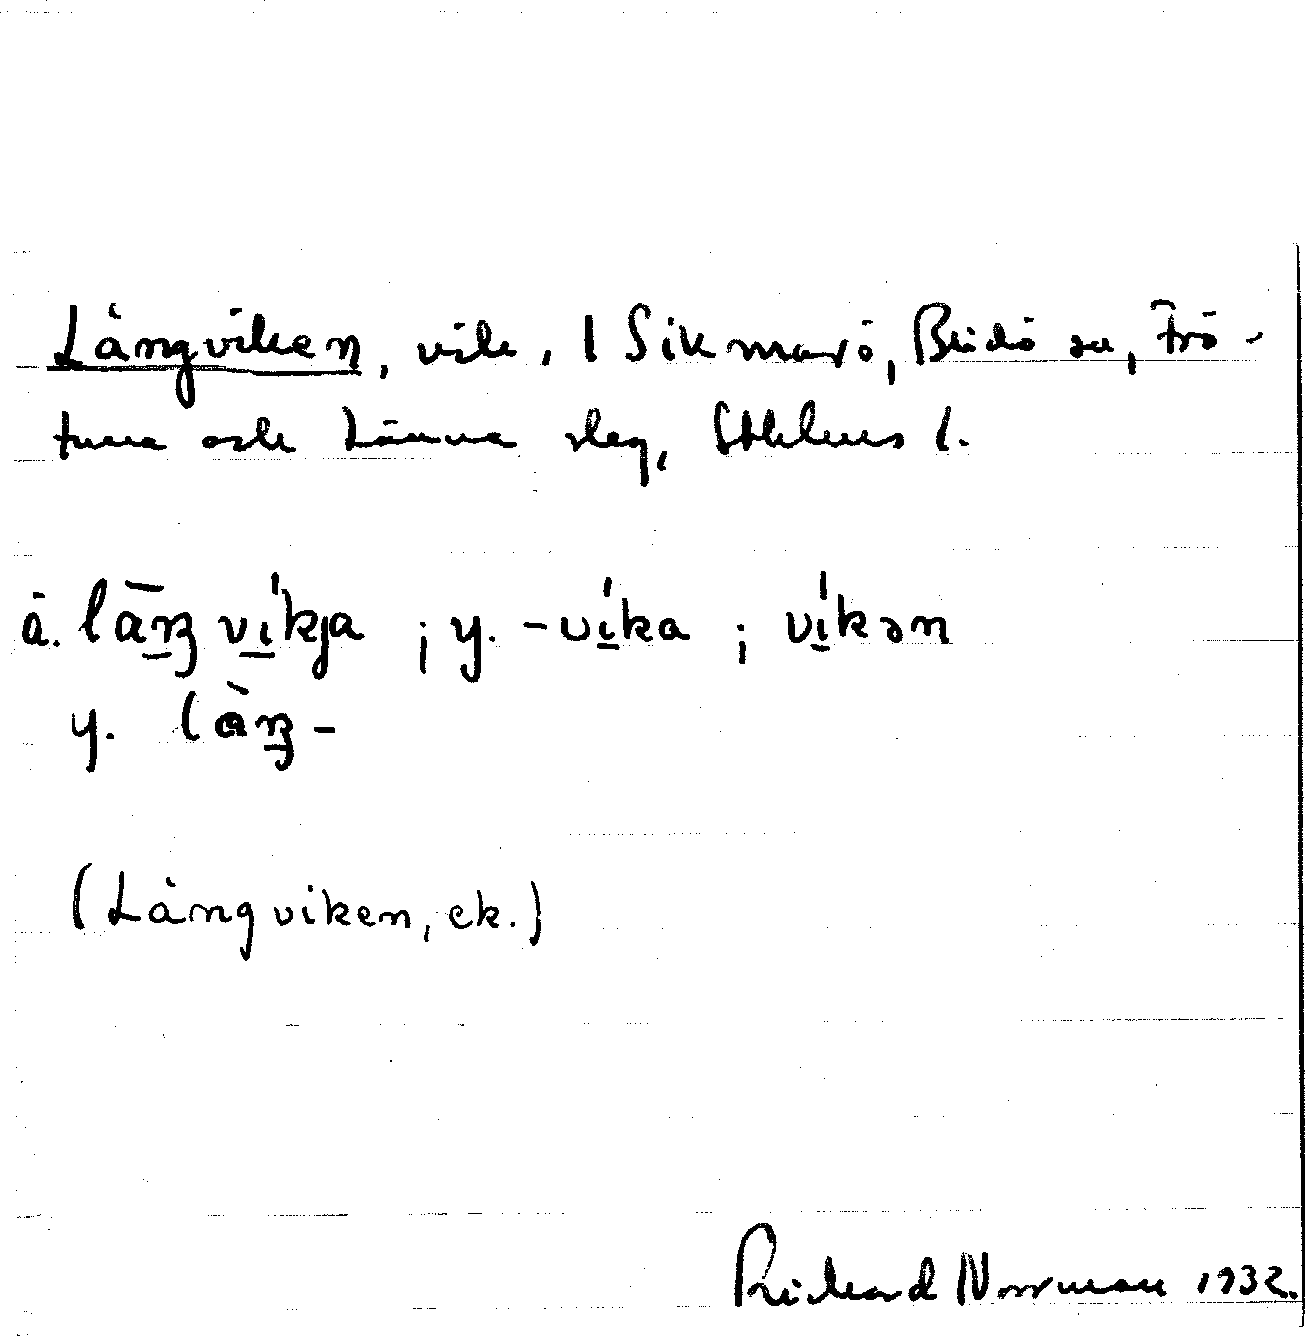 Långviken, vik, I Sikmarö, Blidö sn, Frö-
tuna och Länna slag, Sthlms l.
ä. lāŋ víkja ; y. -víka ; víkən
y. làŋ-
(Långviken, ek.)
Richard Norrman 1932.